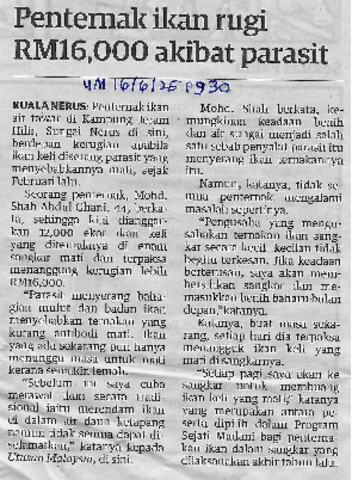 Penternak ikan rugi
RM16,000 akibat parasit
UM 16/6/25 P930
KUALA NERUS: Penternak ikan
air tawar di Kampung Jeram
Hilir, Sungai Nerus di sini,
berdepan kerugian apabila
ikan keli diserang parasit yang
menyebabkannya mati, sejak
Februari lalu.
Seorang penternak, Mohd.
Shah Abdul Ghani, 44, berka-
ta, sehingga kini dianggar-
kan 12,000 ekor ikan keli
yang diternaknya di enam
sangkar mati dan terpaksa
menanggung kerugian lebih
RM16,000.
"Parasit menyerang baha-
gian mulut dan badan ikan
menyebabkan ternakan yang
kurang antibodi mati. Ikan
yang ada sekarang pun hanya
menunggu masa untuk mati
kerana semakin lemah.
"Sebelum ini saya cuba
merawat ikan secara tradi-
sional iaitu merendam ikan
di dalam air daun ketapang
namun tidak semua dapat di-
selamatkan," katanya kepada
Utusan Malaysia, di sini.
Mohd. Shah berkata, ke-
mungkinan keadaan benih
dan air sungai menjadi salah
satu sebab penyakit parasit itu
menyerang ikan ternakannya
itu.
Namun, katanya, tidak se-
mua penternak mengalami
masalah sepertinya.
"Pengusaha yang mengu-
sahakan ternakan ikan sang-
kar secara kecil-kecilan tidak
begitu terkesan. Jika keadaan
berterusan, saya akan mem-
bersihkan sangkar dan me-
masukkan benih baharu bulan
depan," katanya.
Katanya, buat masa seka-
rang, setiap hari dia terpaksa
menangguk ikan keli yang
mati di sangkarnya.
"Setiap pagi saya akan ke
sangkar untuk membuang
ikan keli yang mati," katanya
yang merupakan antara pe-
serta dipilih dalam Program
Sejati Madani bagi penterna-
kan ikan dalam sangkar yang
dilaksanakan akhir tahun lalu.